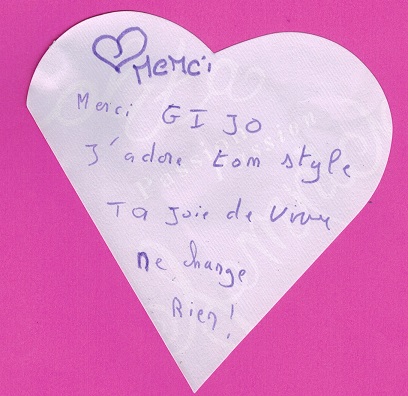 Merci
Merci GI JO
J'adore tom style
Ta Joie de Vivre
ne change
Rien!
Passion
Passion